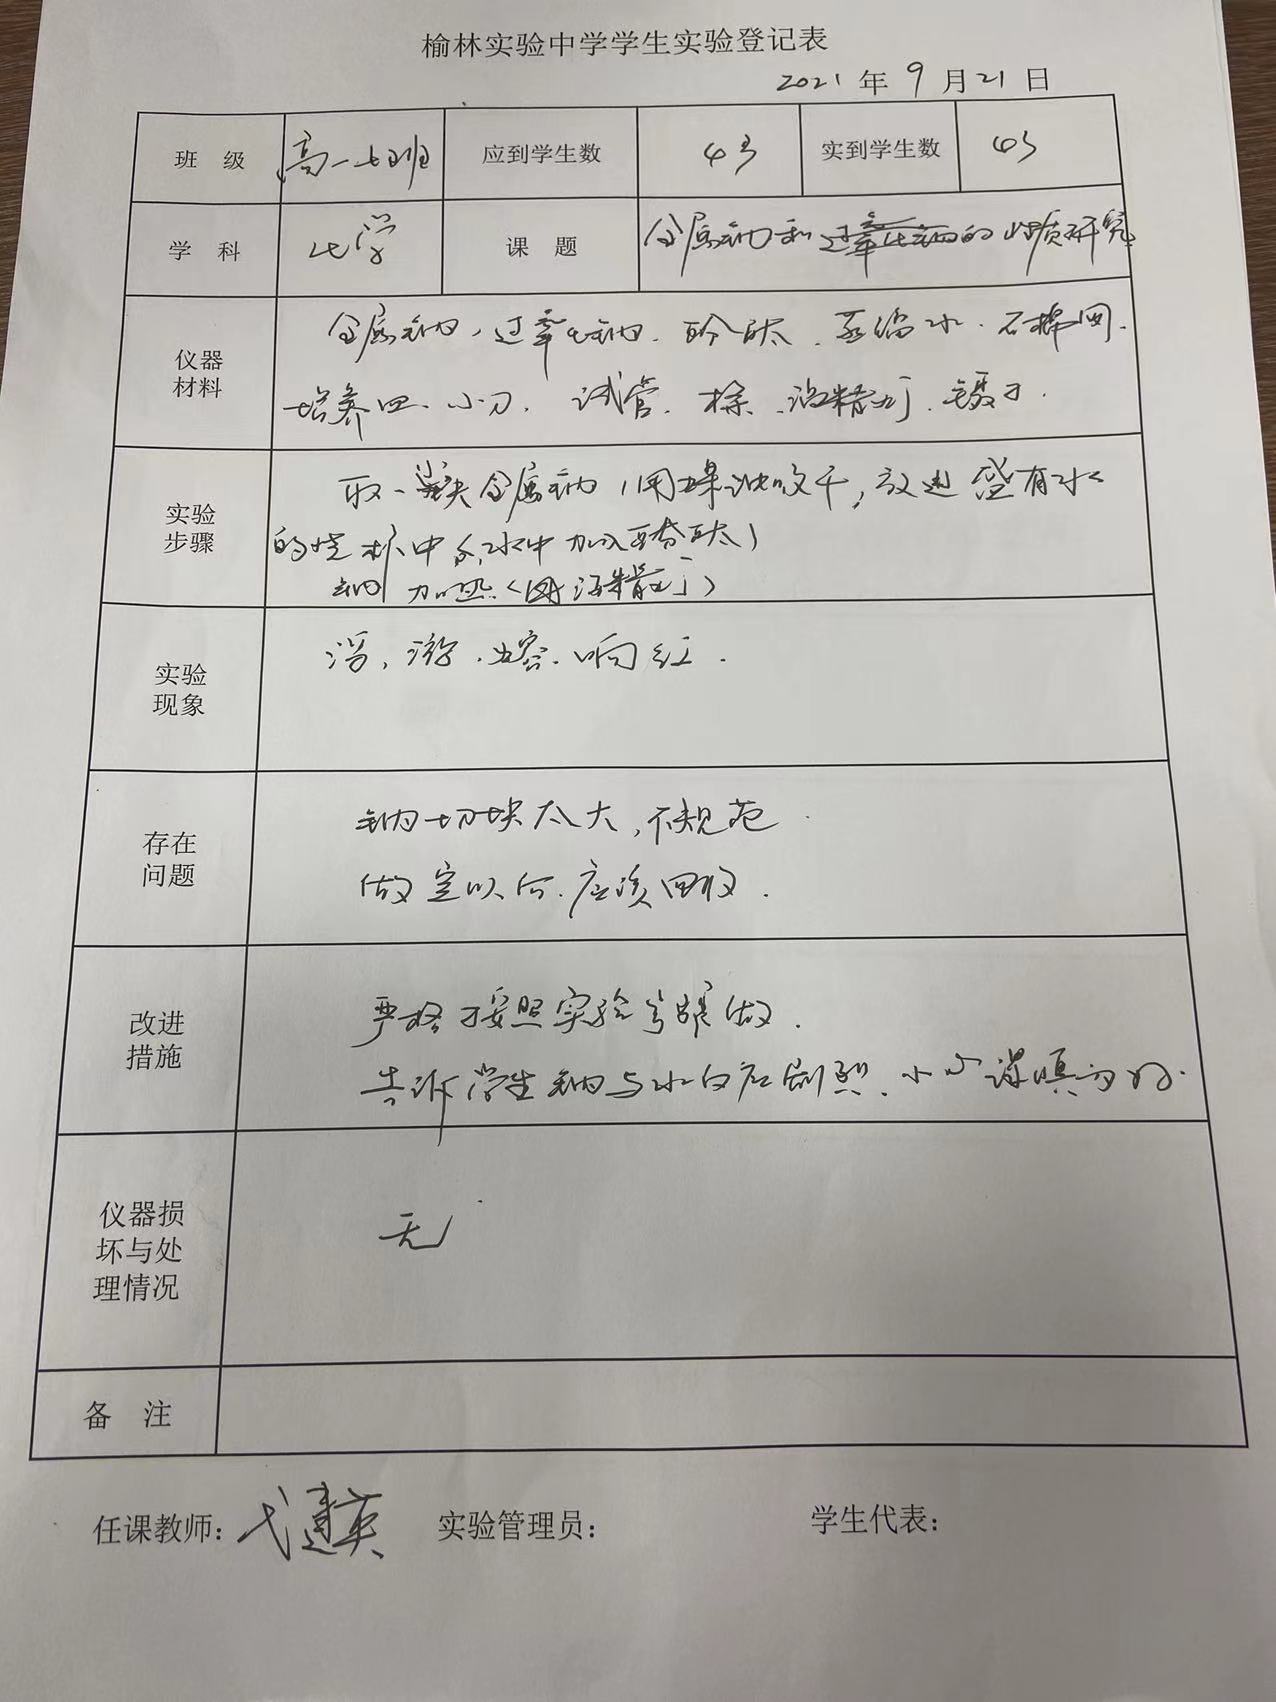 榆林实验中学学生实验登记表
2021 年 9 月 21 日
班 级 高一七班 应到学生数 43 实到学生数 43
学 科 化学 课 题 金属钠和过氧化钠的性质研究
仪器
材料
金属钠、过氧化钠、酚酞、蒸馏水、石棉网、
培养皿、小刀、试管、酒精灯、镊子.
实验
步骤
取一 金属钠(用 吸干,放进盛有水
的烧杯中, 水中加入酚酞)
钠加热(用酒精灯)
实验
现象
浮,游,熔,响,红.
存在
问题
钠切块太大,不规范.
做完以后,应该回收.
改进
措施
严格按照实验步骤做.
告诉学生钠与水反应剧烈,小心谨慎为好.
仪器损
坏与处
理情况
无
备 注
任课教师: 建英 实验管理员: 学生代表: